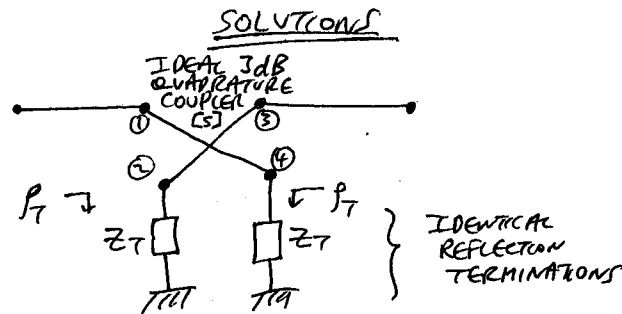 SOLUTIONS
IDEAL 3dB
QUADRATURE
COUPLER
[S]
① ③
② ④
ρ_T ρ_T
Z_T Z_T
IDENTICAL
REFLECTION
TERMINATIONS